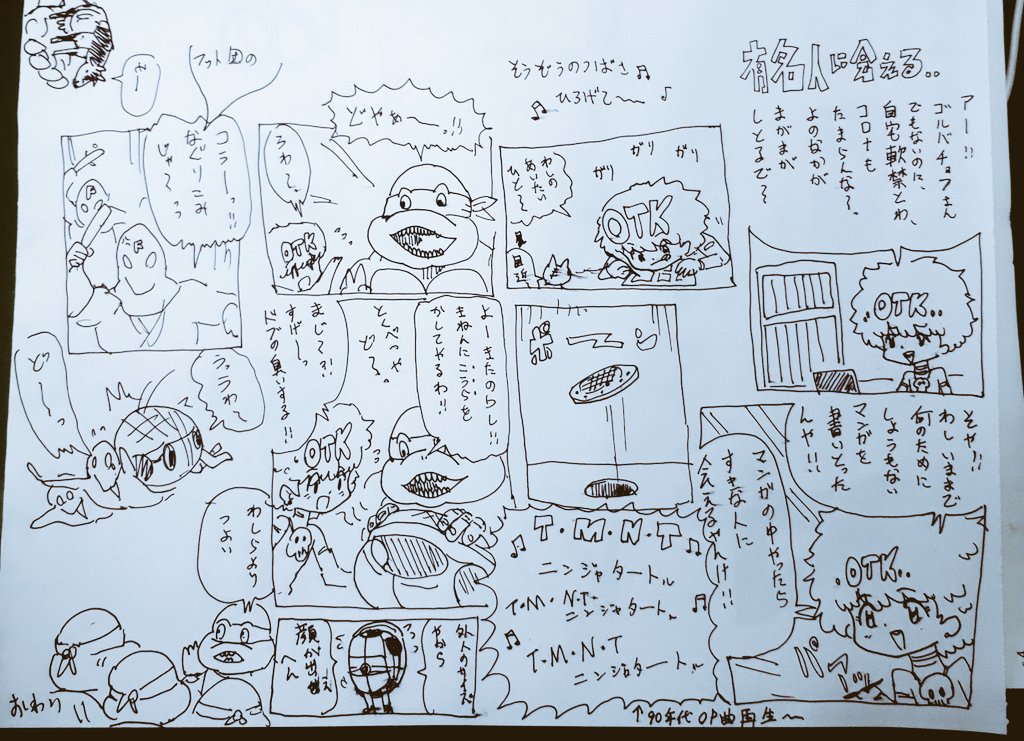 有名人に会える..
アー!!
ゴルバチョフさん
でもないのに、
自宅軟禁とわ、
コロナも
たまらんな〜。
よのなかが
まがまが
しとるで〜
OTK..
そや!!
わしいままで
何のために
しょうもない
マンガを
書いとった
んや!!
.OTK..
マンガの中やったら
すきな人に
会えるやんけ!!
バーン
もうそうのつばさ♫
♪ひろげて〜♪
ガリ ガリ
ガリ
わしの
あいたい
ひと〜
OTK
ポーン
T・M・N・T
ニンジャタートル
T・M・N・T・
ニンジャタートル
T・M・N・T
ニンジャタートル
↑90年代OP曲再生〜
どやぁ〜っ!!
うわ〜
OTK
よーきたのわし!!
きねんにこうらを
かしてやるわ!!
とくべつや
で〜。
まじく?!
すげーっ
ドブの臭いする!!
OTK
外人のサイズ
やから
顔が出ぇ
へん
フット団の
み〜
コラーっ!!
なぐりこみ
じゃ〜っ
うっうわ〜
ど〜っ
わしらより
つよい
おしわり!!